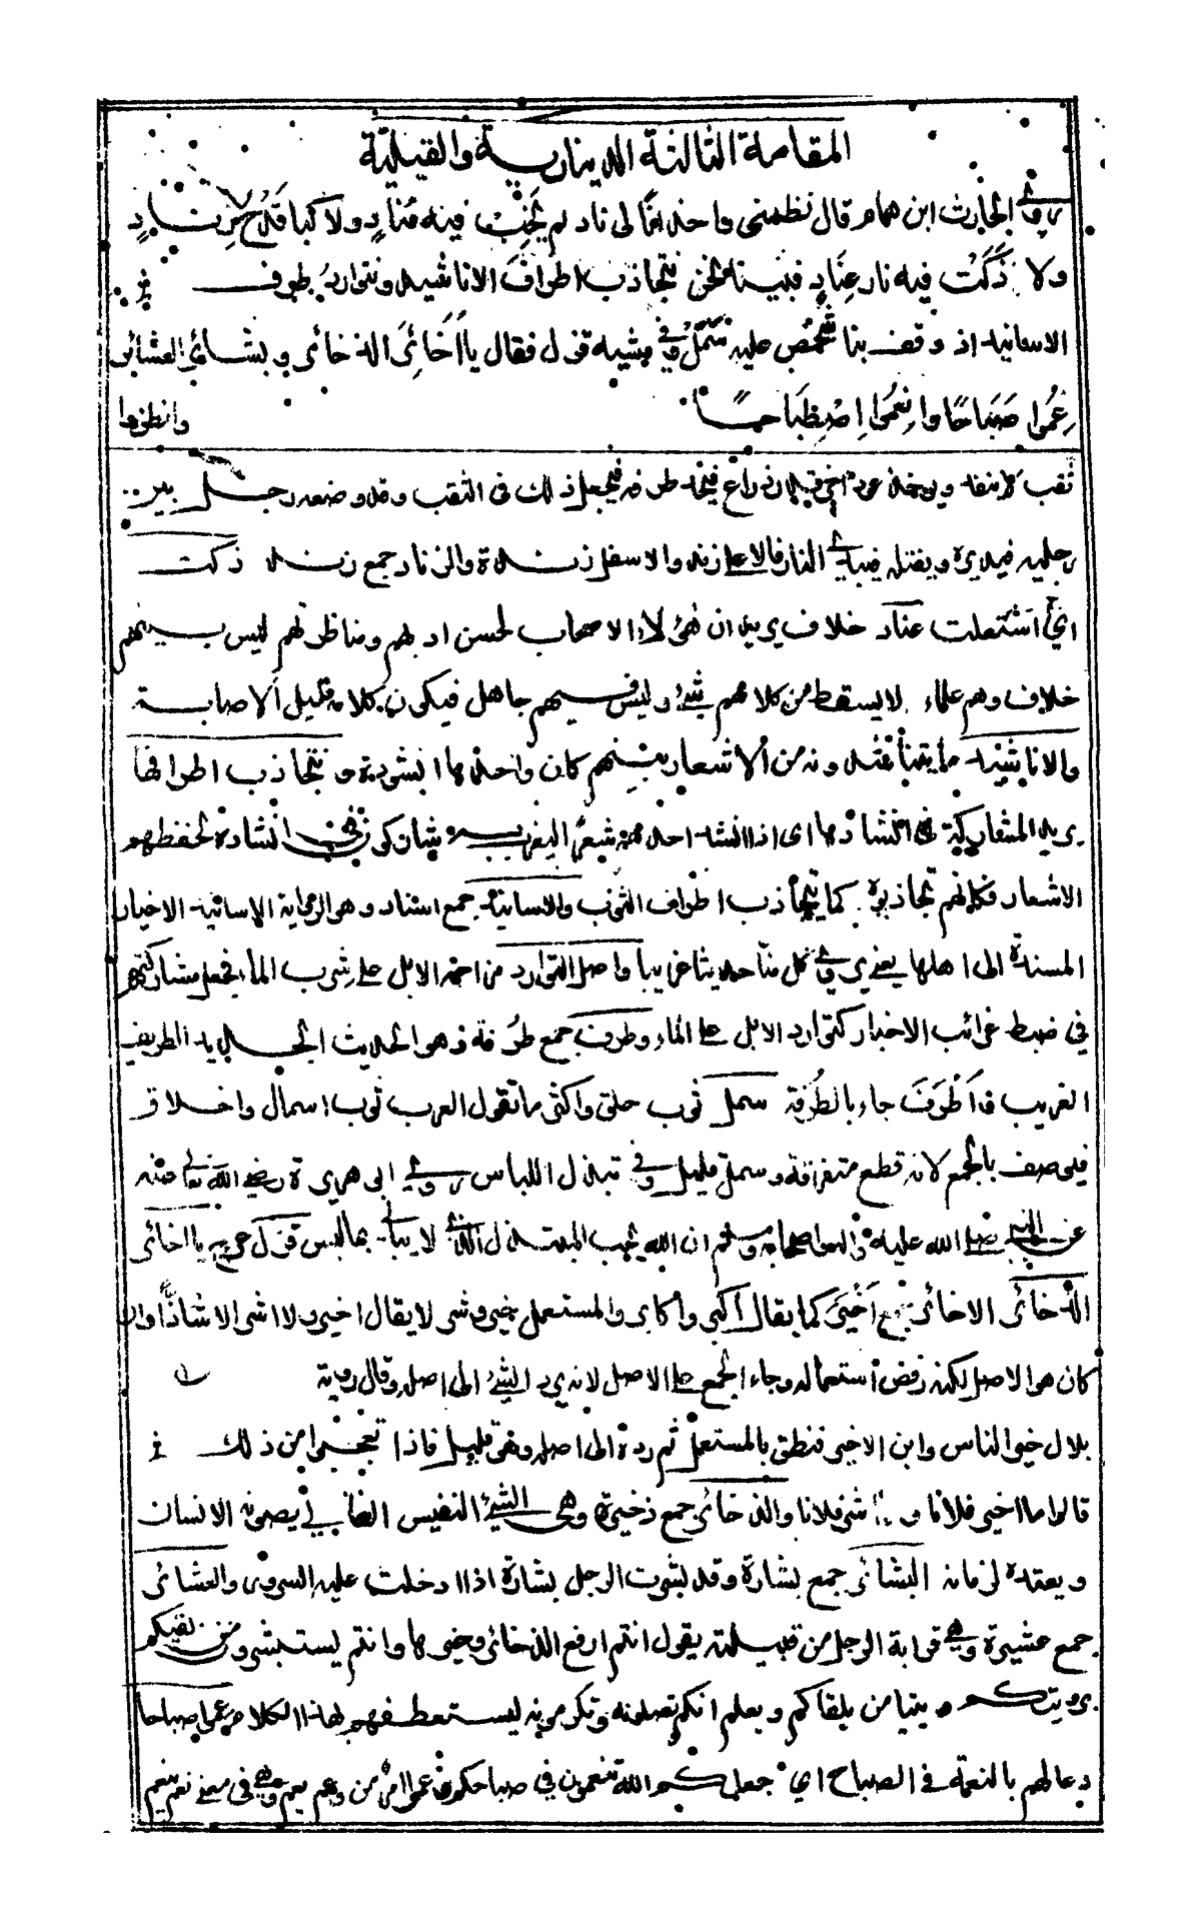 المقامة الثالثة الدينارية والقيلية
روى الحارث ابن همام قال نظمنى واخدانا لى ناد لم يَخِب فيه مُنادٍ ولا كبا قَدْحُ زِنادٍ
ولا ذَكَتْ فيه نار عِنَادٍ فبينا نحن نتجاذب اطراف الاناشيد ونتوارد طرف
الاسانيد اذ وقف بنا شخص عليه سَمَلٌ وفي مشيه قزل فقال يا اَخَائرَ الذخائر وبشائر العشائر
عِمُوا صَبَاحًا وانعِمُوا اِصْطِبَاحًا
وانظروا
رجليه فيديره ويفتله فيأتى النار فالاعلى زند والاسفل زندة والزناد جمع زند ذكت
اى اشتعلت عناد خلاف يريد ان هؤلاء الاصحاب لحسن ادبهم ومناظرتهم ليس بينهم
خلاف وهم علماء لا يسقط من كلامهم شئ وليس فيهم جاهل فيكون كلامه قليل الاصابة
والاناشيد ما يتناشدونه من الاشعار بينهم كان واحدها انشودة و نتجاذب اطرافها
يريد المشاركة فى انشادها اى اذا انشد احدهم شعرا لغريب شاركونى فى انشاده لحفظهم
الاشعار فكانهم تجاذبوه كما يتجاذب اطراف الثوب والاسانيد جمع اسناد وهو الرواية الاسانيد الاخبار
المسندة الى اهلها يعنى يروى كل منا حديثا غريبا واصل التوارد من اخذ الابل على شرب الماء فجعل مشاركتهم
في ضبط غرائب الاخبار كتوارد الابل على الماء وطرف جمع طُرفة وهو الحديث الجديد الطريف
الغريب واَطْرَفَ جاء بالطُرفة سمل ثوب خلق واكثر ما تقول العرب ثوب اسمال واخلاق
فيوصف بالجمع لانه قطع متفرقة وسملة قليل وفى تبذل اللباس روى ابى هريرة رضى الله تعالى عنه
عن النبى صلى الله عليه واله واصحابه وسلم ان الله يحب المبتذل الذى لا يبالى بما لبس قزل عرج يا اخائر
الذخائر الاخائر جمع اَخْيَر كما يقال اكبر واكابر والمستعمل خير وشر لا يقال اخير ولا اشر الا شاذا وان
كان هو الاصل لكنه رفض استعماله وجاء الجمع على الاصل لانه يرد الشئ الى اصله وقال روبة
بلال خير الناس وابن الاخير فنطق بالمستعمل ثم رده الى اصله وهو قليل فاذا تعجبوا من ذلك
قالوا ما اخير فلانا و اشر فلانا والذخائر جمع ذخيرة وهى الشئ النفيس الغالى يصونه الانسان
ويعتده لزمانه البشائر جمع بشارة وقد بشرت الرجل بشارة اذا ادخلت عليه السرور والعشائر
جمع عشيرة وهى قرابة الرجل من قبيلته يقول انتم ارفع الذخائر وخيرها وانتم يستبشر من لقيكم
برؤيتكم ويتيامن بلقاكم ويعلم انكم تصلونه وتكرمونه ليستعطفهم لهذا الكلام عموا صباحا
دعا لهم بالنعمة فى الصباح اي جعلكم الله تنعمون في صباحكم وعموا امر من وعم يعم وهى فى معنى نعم ينعم